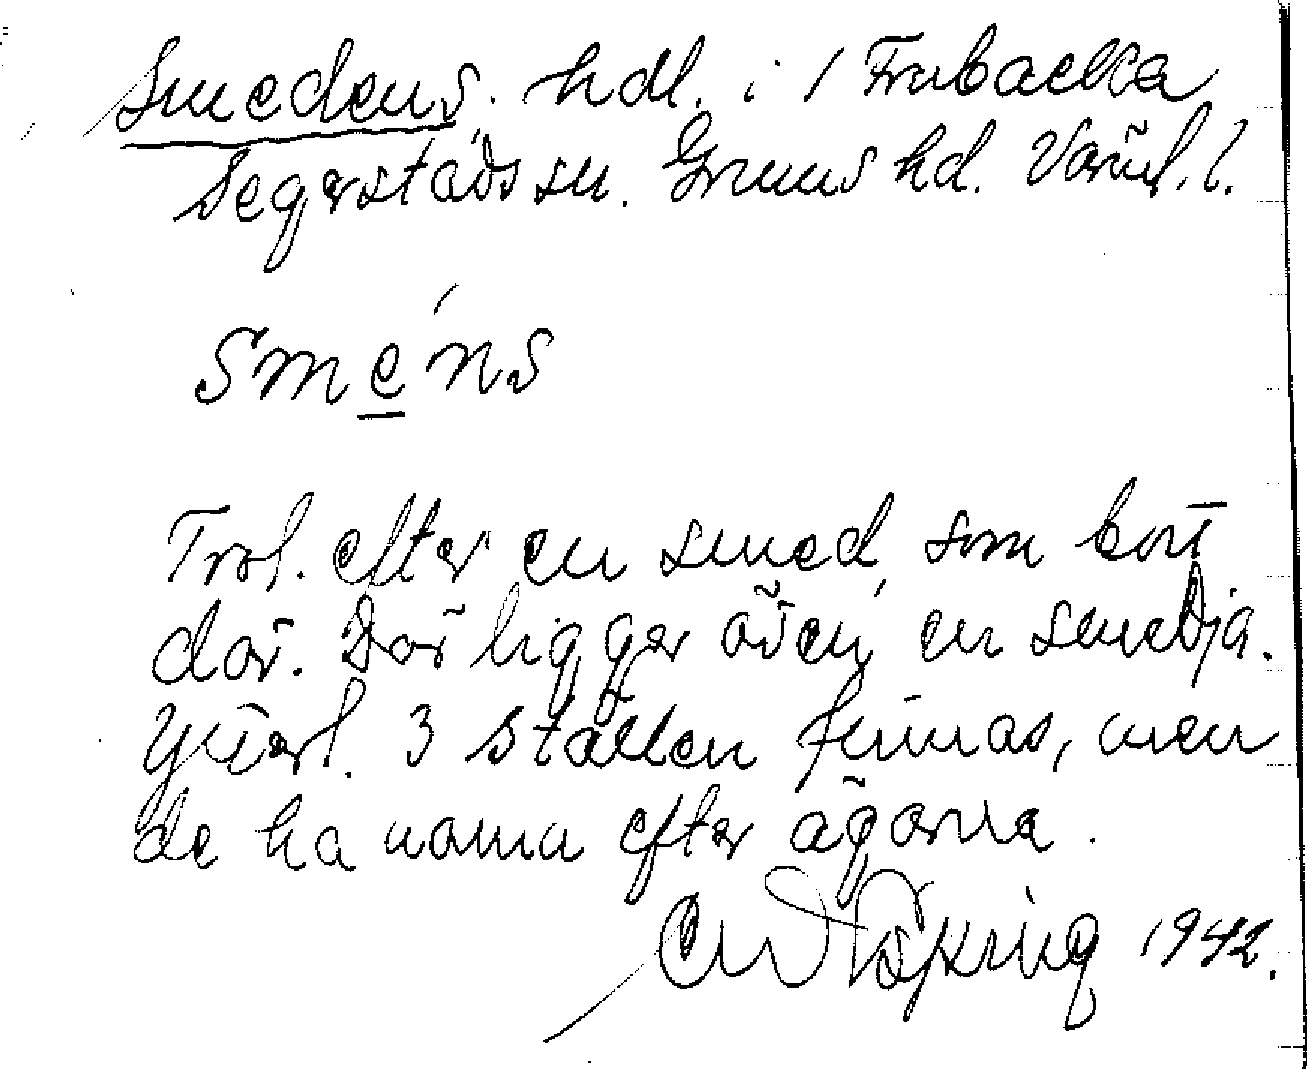 Smedens, hdl. i 1 Frubacka
Segerstads sn. Grums hd. Värml. l.
Smens
Trol. efter en smed, som bott
där. Där ligger även en smedja.
Ytterl. 3 ställen finnas, men
de ha namn efter ägarna.
1942.